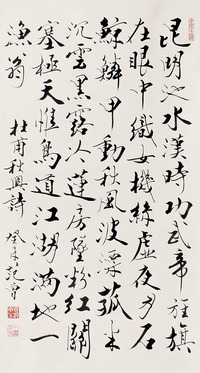 昆明池水漢時功武帝旌旗
在眼中織女機絲虛夜月石
鯨鱗甲動秋風波漂菰米
沉雲黑露冷蓮房墜粉紅關
塞極天惟鳥道江湖滿地一
漁翁
杜甫秋興詩
癸未記曾